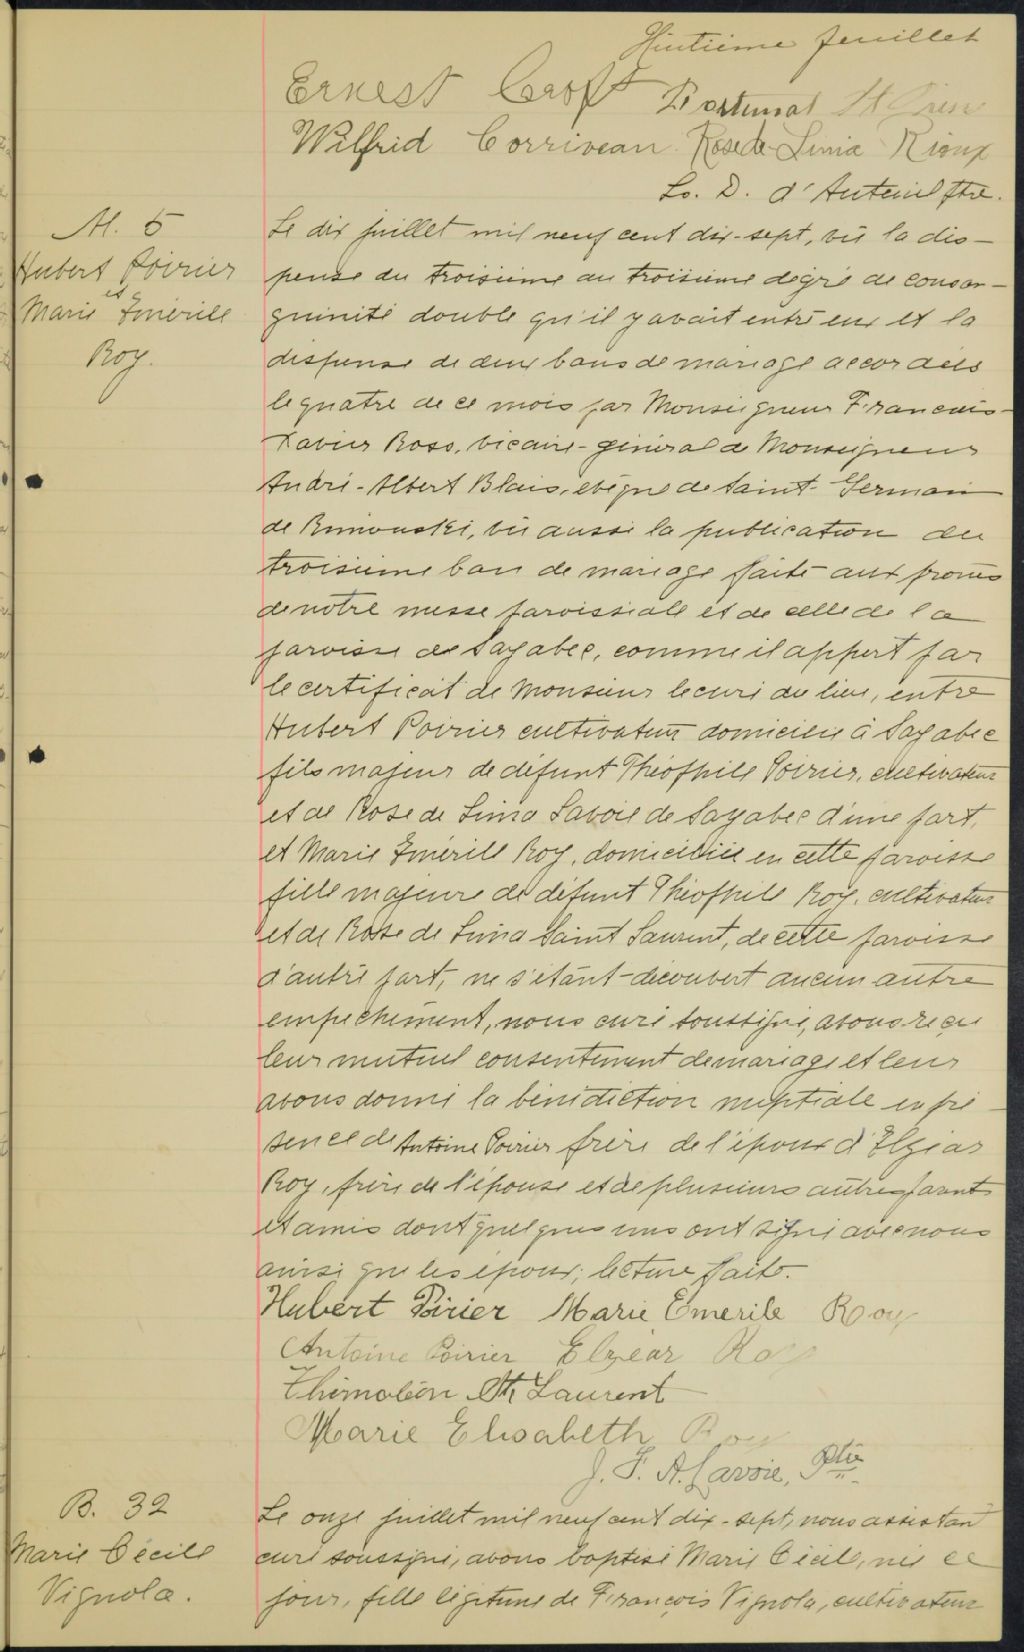 Huitième feuillet
Ernest Croft Fortunat St Pierre
Wilfrid Corriveau Rose de Lima Rioux
Ls. D. d'Auteuil Ptre.
M. 5
Hubert Poirier
et
Marie Émérile
Roy.
Le dix juillet mil neuf cent dix-sept, vû la dis-
pense du troisième au troisième dégré de consan-
guinité double qu'il y avait entre eux et la
dispense de deux bans de mariage accordées
le quatre de ce mois par Monseigneur François-
Xavier Ross, vicaire-général de Monseigneur
André-Albert Blais, evêque de Saint-Germain
de Rimouski, vû aussi la publication du
troisième ban de mariage faite aux prônes
de notre messe paroissiale et de celle de la
paroisse de Sayabec, comme il appert par
le certificat de Monsieur le curé du lieu, entre
Hubert Poirier cultivateur domicilié à Sayabec
fils majeur de défunt Théophile Poirier, cultivateur
et de Rose de Lima Savoie de Sayabec d'une part,
et Marie Émérile Roy, domiciliée en cette paroisse
fille majeure de défunt Théophile Roy, cultivateur
et de Rose de Lima Saint Laurent, de cette paroisse
d'autre part, ne s'étant découvert aucun autre
empêchement, nous curé soussigné, avons reçu
leur mutuel consentement de mariage et leur
avons donné la bénédiction nuptiale en pré-
sence de Antoine Poirier frère de l'époux d'Elzéar
Roy, frère de l'épouse et de plusieurs autres parents
et amis dont quelques uns ont signé avec nous
ainsi que les époux; lecture faite.
Hubert Poirier Marie Emerile Roy
Antoine Poirier Elzéar Roy
Thimoléon St Laurent
Marie Elisabeth Roy
J. F. A. Lavoie, Ptre
B. 32
Marie Cécile
Vignola.
Le onze juillet mil neuf cent dix-sept, nous assistant
curé soussigné, avons baptisé Marie Cécile, née ce
jour, fille légitime de François Vignola, cultivateur